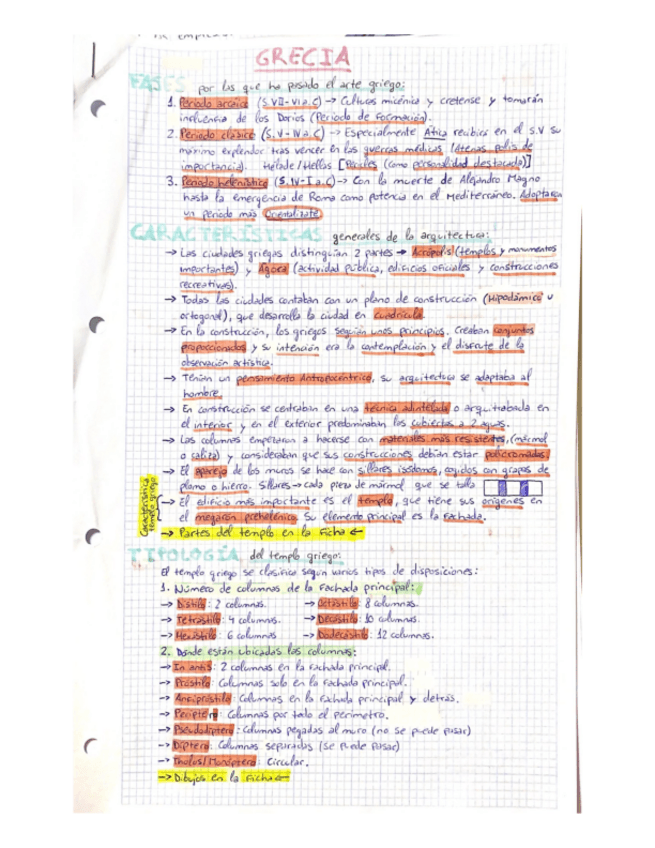 GRECIA
FASES por las que ha pasado el arte griego:
1. Periodo arcaico (S.VII-VI a.C) → Cultura micénica y cretense y tomarán
influencia de los Dorios (Periodo de Formación).
2. Periodo clásico (S.V-IV a.C) → Especialmente Atica recibirá en el S.V su
máximo explendor tras vencer en las guerras médicas (Atenas polis de
importancia). Hélade/Hellas [Pericles (como personalidad destacada)]
3. Periodo helenístico (S.IV-I a.C) → Con la muerte de Alejandro Magno
hasta la emergencia de Roma como potencia en el Mediterráneo. Adoptarán
un periodo más Orientalizate
CARACTERÍSTICAS generales de la arquitectura:
→ Las ciudades griegas distinguían 2 partes → Acrópolis (templos y monumentos
importantes) y Agora (actividad pública, edificios oficiales y construcciones
recreativas).
→ Todas las ciudades contaban con un plano de construcción (Hipodámico u
ortogonal), que desarrolla la ciudad en cuadrícula.
→ En la construcción, los griegos seguían unos principios. Creaban conjuntos
proporcionados y su intención era la contemplación y el disfrute de la
observación artística.
→ Tenían un pensamiento Antropocéntrico, su arquitectura se adaptaba al
hombre.
→ En construcción se centraban en una técnica adintelada o arquitrabada en
el interior y en el exterior predominban las cubiertas a 2 aguas.
→ Las columnas empezaron a hacerse con materiales más resistentes, (mármol
o caliza) y consideraban que sus construcciones debían estar policromadas
→ El aparejo de los muros se hace con sillares isódomos, cogidos con grapas de
plomo o hierro. Sillares → cada pieza de mármol que se talla
Característica
templo griego
→ El edificio más importante es el templo, que tiene sus orígenes en
el megarón prehelénico. Su elemento principal es la Fachada.
→ Partes del templo en la Ficha ←
TIPOLOGÍA del templo griego:
El templo griego se clasifica segun varios tipos de disposiciones:
1. Número de columnas de la Fachada principal:
→ Distilo: 2 columnas. → Octastilo: 8 columnas.
→ Tetrastilo: 4 columnas. → Decastilo: 10 columnas.
→ Hexastilo: 6 columnas → Dodecastilo: 12 columnas.
2. Dónde están ubicadas las columnas:
→ In antis: 2 columnas en la Fachada principal.
→ Próstilo: Columnas solo en la Fachada principal.
→ Anfipróstilo: Columnas en la Fachada principal y detrás.
→ Periptero: Columnas por todo el perímetro.
→ Pseudodíptero: Columnas pegadas al muro (no se puede pasar)
→ Díptero: Columnas separadas (se puede pasar)
→ Tholos/Monóptero: Circular.
→ Dibujos en la Ficha ←